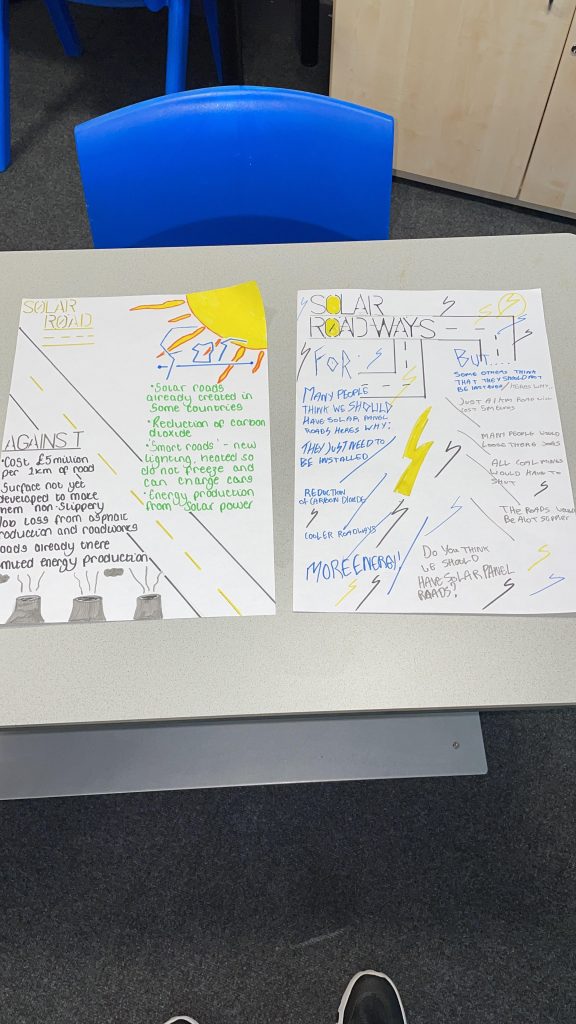 SOLAR
ROAD
FOR
• Solar roads
already created in
some countries
• Reduction of carbon
dioxide
• 'Smart roads' - new
lighting, heated so
do not freeze and
can charge cars
• Energy production
from solar power
AGAINST
• Cost £5million
per 1km of road
Surface not yet
developed to make
them non-slippery
Job loss from asphalt
production and roadworks
roads already there
limited energy production
SOLAR
ROADWAYS
FOR:
MANY PEOPLE
THINK WE SHOULD
HAVE SOLAR PANEL
ROADS HERES WHY:
THEY JUST NEED TO
BE INSTALLED
REDUCTION
OF CARBON DIOXIDE
COOLER ROADWAYS
MORE ENERGY!
BUT
SOME OTHERS THINK
THAT THEY SHOULD NOT
BE INSTALLED HERES WHY,
JUST A 1KM ROAD WILL
COST
MANY PEOPLE WOULD
LOOSE THERE JOBS
ALL COAL MINES
WOULD HAVE TO
SHUT
THE ROADS WOULD
BE ALOT
DO YOU THINK
WE SHOULD
HAVE SOLAR PANEL
ROADS?